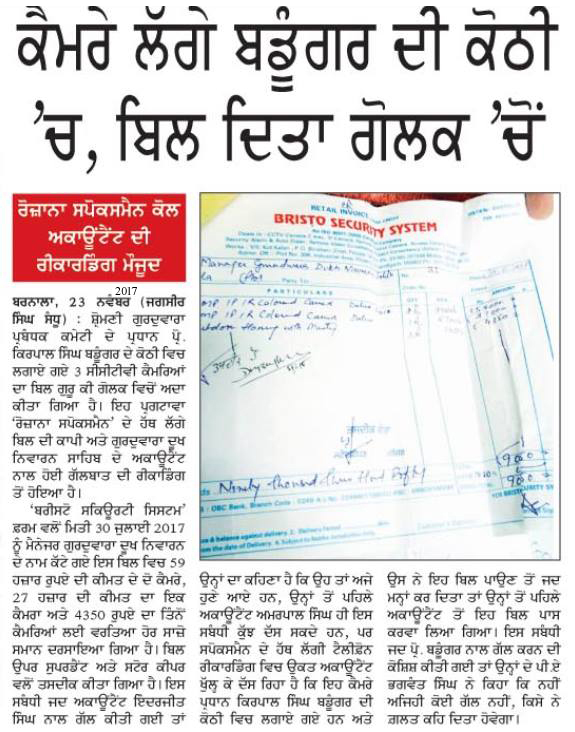 ਕੈਮਰੇ ਲੱਗੇ ਬਡੂੰਗਰ ਦੀ ਕੋਠੀ
'ਚ, ਬਿਲ ਦਿਤਾ ਗੋਲਕ 'ਚੋਂ
ਰੋਜ਼ਾਨਾ ਸਪੋਕਸਮੈਨ ਕੋਲ
ਅਕਾਊਂਟੈਂਟ ਦੀ
ਰੀਕਾਰਡਿੰਗ ਮੌਜੂਦ
2017
ਬਰਨਾਲਾ, 23 ਨਵੰਬਰ (ਜਗਸੀਰ
ਸਿੰਘ ਸੰਧੂ) : ਸ਼੍ਰੋਮਣੀ ਗੁਰਦੁਵਾਰਾ
ਪ੍ਰਬੰਧਕ ਕਮੇਟੀ ਦੇ ਪ੍ਰਧਾਨ ਪ੍ਰੋ.
ਕਿਰਪਾਲ ਸਿੰਘ ਬਡੂੰਗਰ ਦੇ ਕੋਠੀ ਵਿਚ
ਲਗਾਏ ਗਏ 3 ਸੀਸੀਟੀਵੀ ਕੈਮਰਿਆਂ
ਦਾ ਬਿਲ ਗੁਰੂ ਕੀ ਗੋਲਕ ਵਿਚੋਂ ਅਦਾ
ਕੀਤਾ ਗਿਆ ਹੈ। ਇਹ ਪ੍ਰਗਟਾਵਾ
'ਰੋਜ਼ਾਨਾ ਸਪੋਕਸਮੈਨ' ਦੇ ਹੱਥ ਲੱਗੇ
ਬਿਲ ਦੀ ਕਾਪੀ ਅਤੇ ਗੁਰਦੁਵਾਰਾ ਦੂਖ
ਨਿਵਾਰਨ ਸਾਹਿਬ ਦੇ ਅਕਾਊਂਟੈਂਟ
ਨਾਲ ਹੋਈ ਗੱਲਬਾਤ ਦੀ ਰੀਕਾਡਿੰਗ
ਤੋਂ ਹੋਇਆ ਹੈ।
'ਬਰੀਸਟੋ ਸਕਿਊਰਟੀ ਸਿਸਟਮ'
ਫ਼ਰਮ ਵਲੋਂ ਮਿਤੀ 30 ਜੁਲਾਈ 2017
ਨੂੰ ਮੈਨੇਜਰ ਗੁਰਦੁਵਾਰਾ ਦੂਖ ਨਿਵਾਰਨ
ਦੇ ਨਾਮ ਕੱਟੇ ਗਏ ਇਸ ਬਿਲ ਵਿਚ 59
ਹਜ਼ਾਰ ਰੁਪਏ ਦੀ ਕੀਮਤ ਦੇ ਦੋ ਕੈਮਰੇ,
27 ਹਜ਼ਾਰ ਦੀ ਕੀਮਤ ਦਾ ਇਕ
ਕੈਮਰਾ ਅਤੇ 4350 ਰੁਪਏ ਦਾ ਤਿੰਨੋਂ
ਕੈਮਰਿਆਂ ਲਈ ਵਰਤਿਆ ਹੋਰ ਸਾਜ਼ੋ
ਸਮਾਨ ਦਰਸਾਇਆ ਗਿਆ ਹੈ। ਬਿਲ
ਉਪਰ ਸੁਪਰਡੰਟ ਅਤੇ ਸਟੋਰ ਕੀਪਰ
ਵਲੋਂ ਤਸਦੀਕ ਕੀਤਾ ਗਿਆ ਹੈ। ਇਸ
ਸਬੰਧੀ ਜਦ ਅਕਾਊਂਟੈਂਟ ਇਦਰਜੀਤ
ਸਿੰਘ ਨਾਲ ਗੱਲ ਕੀਤੀ ਗਈ ਤਾਂ
RETAIL INVOICE
BRISTO SECURITY SYSTEM
PARTICULARS
Ninety Thousand Three Hund Fifty
ਉਨ੍ਹਾਂ ਦਾ ਕਹਿਣਾ ਹੈ ਕਿ ਉਹ ਤਾਂ ਅਜੇ
ਹੁਣੇ ਆਏ ਹਨ, ਉਨ੍ਹਾਂ ਤੋਂ ਪਹਿਲੇ
ਅਕਾਊਟੈਂਟ ਅਮਰਪਾਲ ਸਿੰਘ ਹੀ ਇਸ
ਸਬੰਧੀ ਕੁੱਝ ਦੱਸ ਸਕਦੇ ਹਨ, ਪਰ
ਸਪੋਕਸਮੈਨ ਦੇ ਹੱਥ ਲੱਗੀ ਟੈਲੀਫ਼ੋਨ
ਰੀਕਾਰਡਿੰਗ ਵਿਚ ਉਕਤ ਅਕਾਊਂਟੈਂਟ
ਖੁੱਲ੍ਹ ਕੇ ਦੱਸ ਰਿਹਾ ਹੈ ਕਿ ਇਹ ਕੈਮਰੇ
ਪ੍ਰਧਾਨ ਕਿਰਪਾਲ ਸਿੰਘ ਬਡੂੰਗਰ ਦੀ
ਕੋਠੀ ਵਿਚ ਲਗਾਏ ਗਏ ਹਨ ਅਤੇ
ਉਸ ਨੇ ਇਹ ਬਿਲ ਪਾਉਣ ਤੋਂ ਜਦ
ਮਨ੍ਹਾਂ ਕਰ ਦਿਤਾ ਤਾਂ ਉਨ੍ਹਾਂ ਤੋਂ ਪਹਿਲੇ
ਅਕਾਊਟੈਂਟ ਤੋਂ ਇਹ ਬਿਲ ਪਾਸ
ਕਰਵਾ ਲਿਆ ਗਿਆ। ਇਸ ਸਬੰਧੀ
ਜਦ ਪ੍ਰੋ. ਬਡੂੰਗਰ ਨਾਲ ਗੱਲ ਕਰਨ ਦੀ
ਕੋਸ਼ਿਸ਼ ਕੀਤੀ ਗਈ ਤਾਂ ਉਨ੍ਹਾਂ ਦੇ ਪੀ.ਏ
ਭਗਵੰਤ ਸਿੰਘ ਨੇ ਕਿਹਾ ਕਿ ਨਹੀਂ
ਅਜਿਹੀ ਕੋਈ ਗੱਲ ਨਹੀਂ, ਕਿਸੇ ਨੇ
ਗ਼ਲਤ ਕਹਿ ਦਿਤਾ ਹੋਵੇਗਾ।